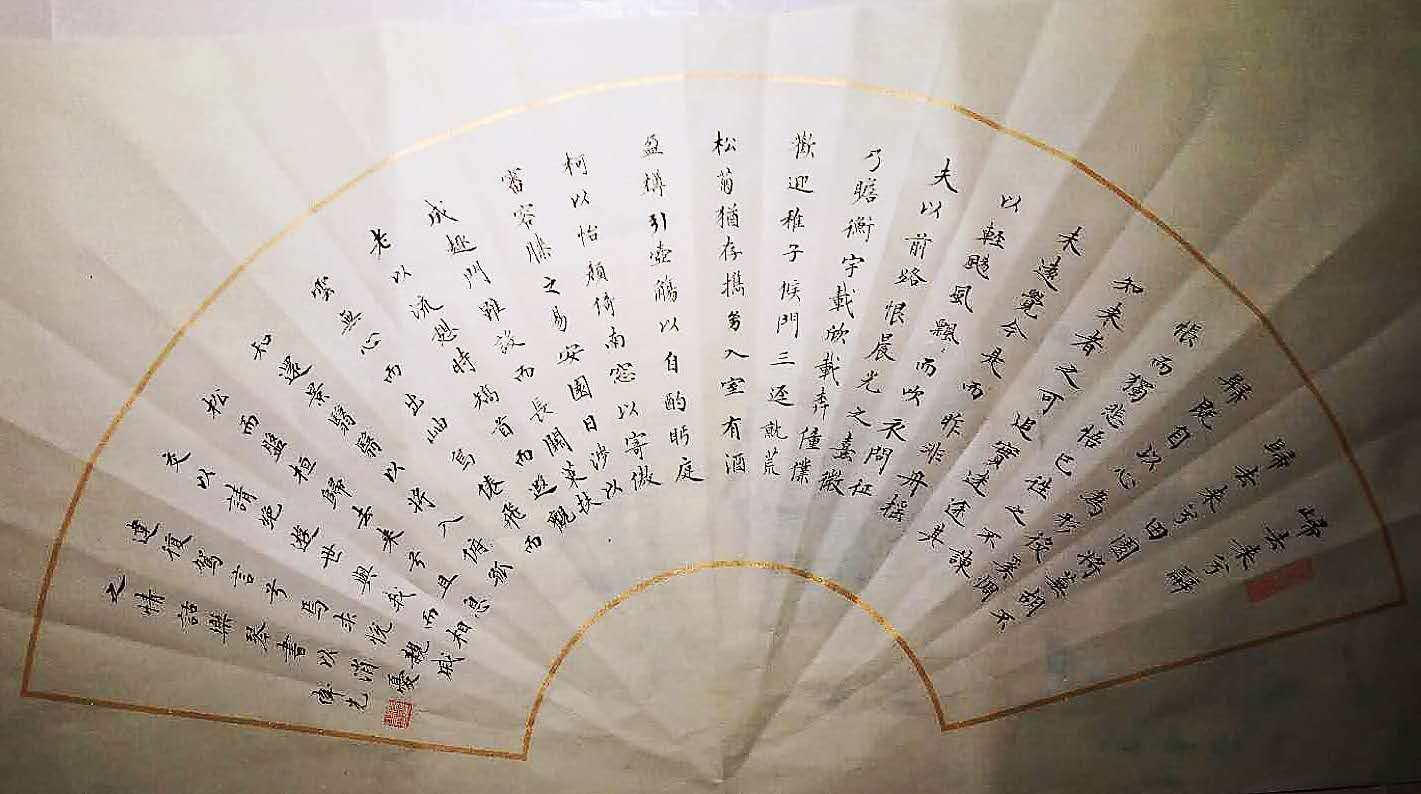 歸去来兮辭
歸去来兮田園將蕪胡不
歸既自以心為形役奚惆
悵而獨悲悟已往之不諫
知来者之可追實迷途其
未遠覺今是而昨非舟遥
以輕颺風飄飄而吹衣問征
夫以前路恨晨光之熹微
乃瞻衡宇載欣載奔僮僕
歡迎稚子候門三逕就荒
松菊猶存携幼入室有酒
盈樽引壺觴以自酌眄庭
柯以怡顔倚南窓以寄傲
審容膝之易安園日涉以
成趣門雖設而長關策扶
老以流憩時矯首而遐觀
雲無心而出岫鳥倦飛而
知還景翳翳以將入撫孤
松而盤桓歸去来兮請息
交以絕遊世與我而相
違復駕言兮焉求悅親戚
之情話樂琴書以消憂